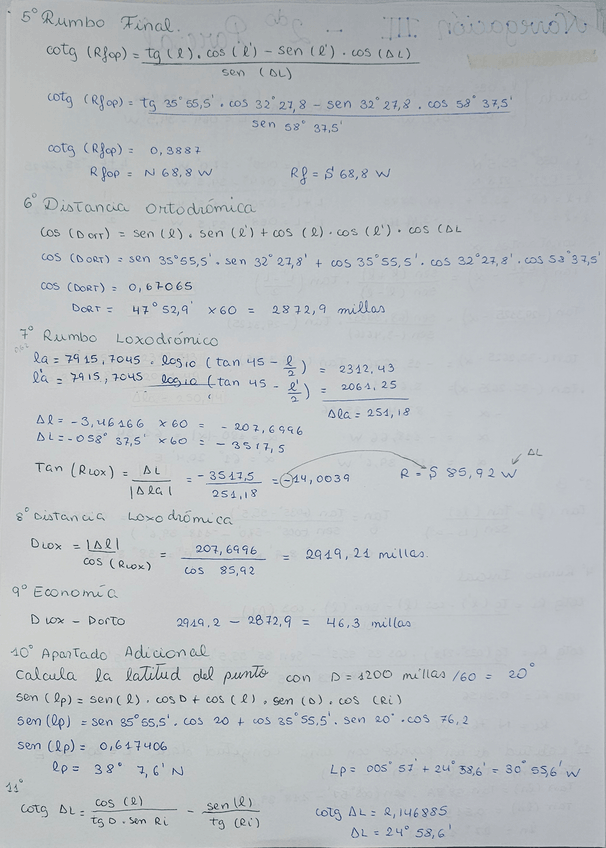 5° Rumbo Final.
cotg (Rfop) = tg (l) . cos (l') - sen (l') . cos (ΔL)
sen (ΔL)
cotg (Rfop) = tg 35°55,5' . cos 32°27,8 - sen 32°27,8 . cos 58°37,5'
sen 58° 37,5'
cotg (Rfop) = 0,3887
Rfop = N 68,8 W Rf = S 68,8 W
6° Distancia Ortodrómica
cos (Dort) = sen (l) . sen (l') + cos (l) . cos (l') . cos (ΔL
cos (DORT) = sen 35°55,5' . sen 32°27,8' + cos 35°55,5' . cos 32°27,8' . cos 58°37,5'
cos (DORT) = 0,67065
DORT = 47° 52,9' x60 = 2872,9 millas
7° Rumbo Loxodrómico
la = 7915,7045 . log10 (tan 45 - l/2) = 2312,43
l'a = 7915,7045 log10 (tan 45 - l'/2) = 2061,25
Δla = 251,18
Δl = -3,46166 x60 = -207,6996
ΔL = -058° 37,5' x60 = -3517,5
Tan (RLOX) = ΔL / |Δla| = -3517,5 / 251,18 = -14,0039 R = S 85,92 W ΔL
8° Distancia Loxodrómica
DLOX = |Δl| / cos (RLOX) = 207,6996 / cos 85,92 = 2919,21 millas.
9° Economía
DLOX - Dorto 2919,2 - 2872,9 = 46,3 millas
10° Apartado Adicional
Calcula la latitud del punto con D = 1200 millas /60 = 20°
sen (lp) = sen (l) . cos D + cos (l) . sen (D) . cos (Ri)
sen (lp) = sen 35°55,5' . cos 20 + cos 35°55,5' . sen 20° . cos 76,2
sen (lp) = 0,617406
lp = 38° 7,6' N Lp = 005° 57' + 24° 58,6' = 30° 55,6' W
11°
cotg ΔL = cos (l) / tg D . sen Ri - sen (l) / tg (Ri) cotg ΔL = 2,146885
ΔL = 24° 58,6'